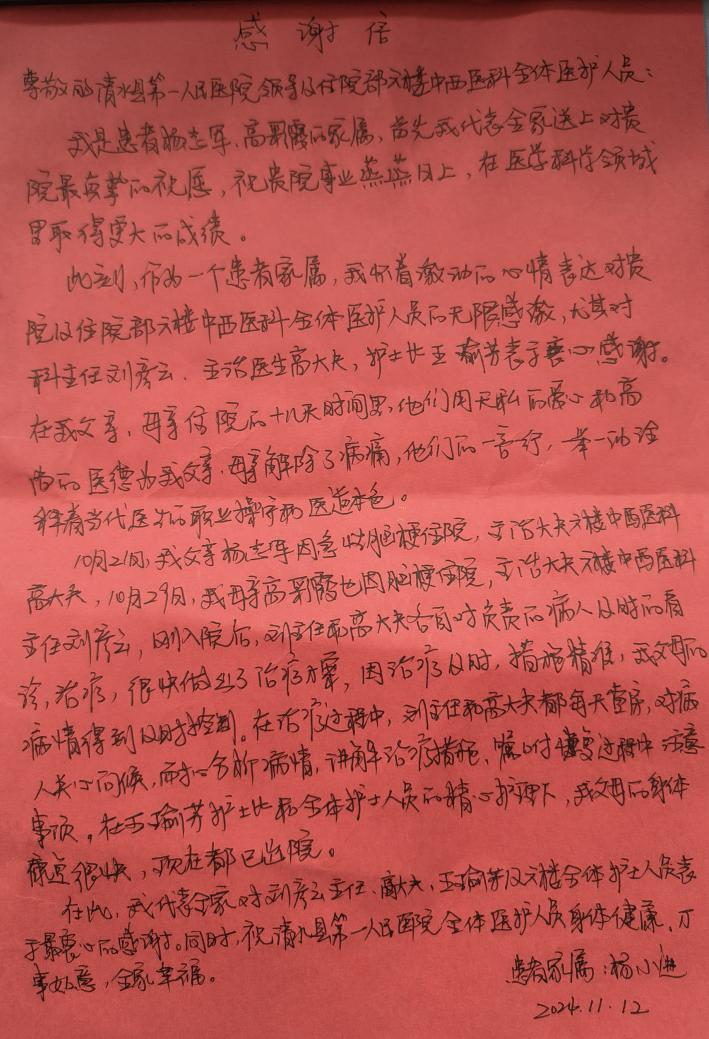 感谢信
尊敬的清水县第一人民医院领导及住院部六楼中西医科全体医护人员：
我是患者杨志军、高彩霞的家属，首先我代表全家送上对贵
院最真挚的祝愿，祝贵院事业蒸蒸日上，在医学科学领域
里取得更大的成绩。
此刻，作为一个患者家属，我怀着激动的心情表达对贵
院及住院部六楼中西医科全体医护人员的无限感激，尤其对
科主任刘彦云、主治医生高大夫，护士长王瑜芳表示衷心感谢。
在我父亲、母亲住院的十几天时间里，他们用无私的爱心和高
尚的医德为我父亲、母亲解除了病痛，他们的一言行，举一动诠
释着当代医生的职业操守和医道本色。
10月21日，我父亲杨志军因急性脑梗住院，主治大夫六楼中西医科
高大夫，10月29日，我母亲高彩霞也因脑梗住院，主治大夫六楼中西医科
主任刘彦云，刚入院后，刘主任和高大夫各自对负责的病人及时的看
诊，治疗，很快做出了治疗方案，因治疗及时，措施精准，我父母的
病情得到及时控制。在治疗过程中，刘主任和高大夫都每天查房，对病
人关心问候，耐心分析病情，讲解治疗措施、嘱咐康复过程中注意
事项。在王瑜芳护士长和全体护士人员的精心护理下，我父母的身体
康复很快，现在都已出院。
在此，我代表全家对刘彦云主任、高大夫，王瑜芳及六楼全体护士人员表
于最衷心的感谢。同时，祝清水县第一人民医院全体医护人员身体健康、万
事如意，全家幸福。
患者家属：杨小进
2024.11.12